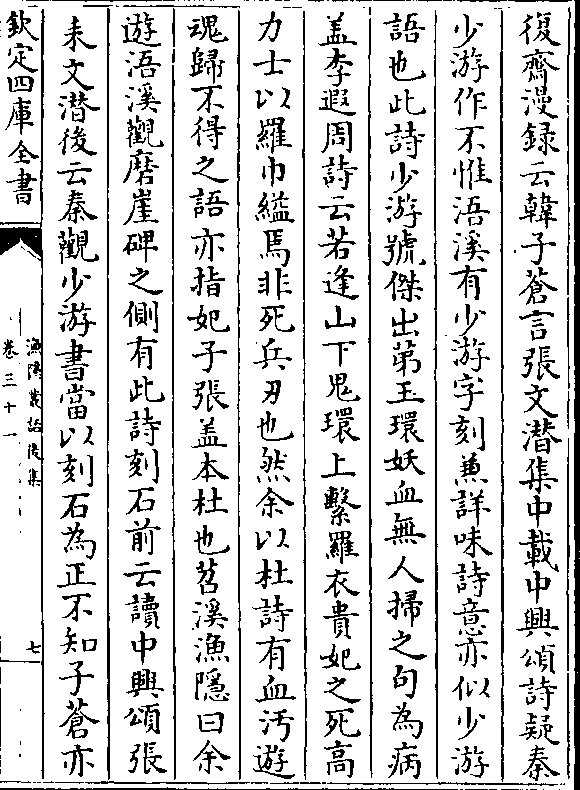 復齋漫録云韓子蒼言張文潜集中載中興頌詩疑秦
少游作不惟浯溪有少游字刻兼詳味詩意亦似少游
語也此詩少游號傑出第玉環妖血無人掃之句為病
盖李遐周詩云若逢山下鬼環上繫羅衣貴妃之死髙
力士以羅巾縊焉非死兵刃也然余以杜詩有血汚遊
魂歸不得之語亦指妃子張盖本杜也苕溪漁隱曰余
遊浯溪觀磨崖碑之側有此詩刻石前云讀中興頌張
耒文潜後云秦觀少游書當以刻石為正不知子蒼亦
欽定四庫全書
漁隱叢話後集
卷三十一
七